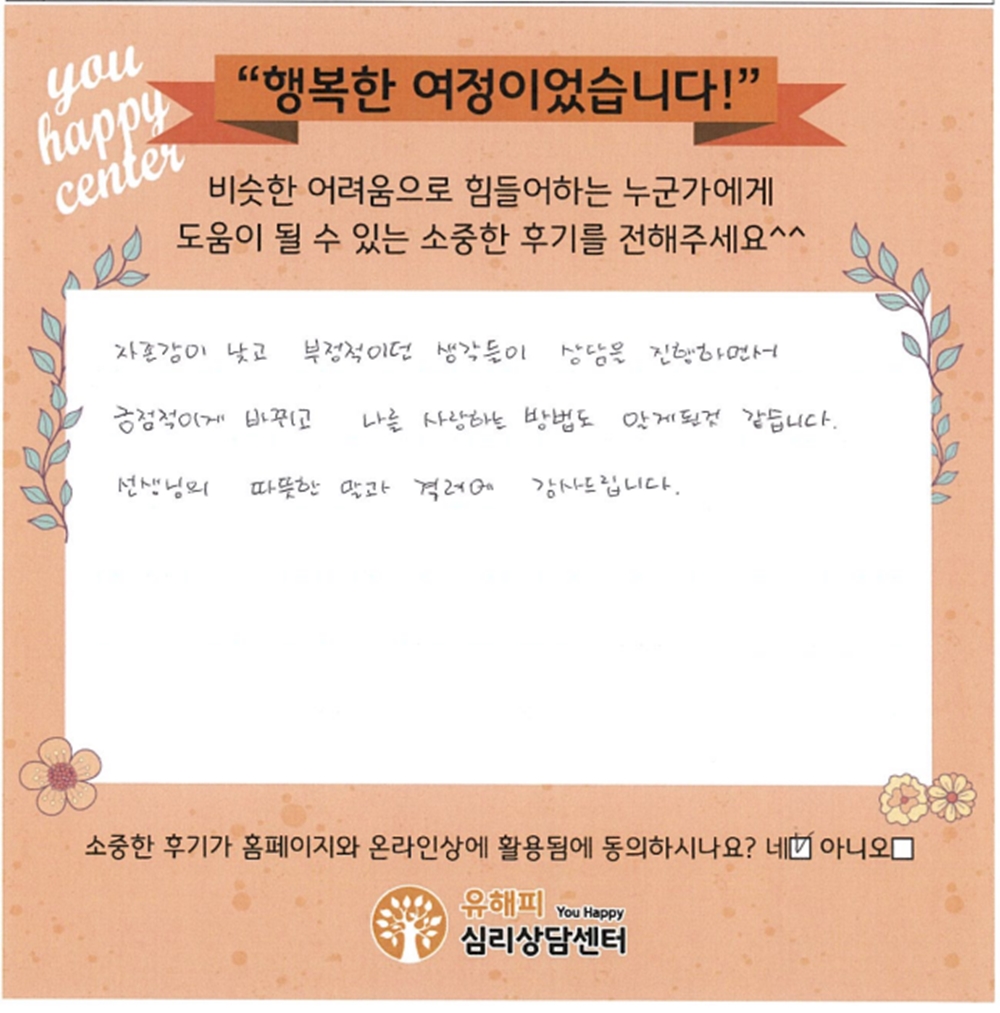 you
happy
center
“행복한 여정이었습니다!”
비슷한 어려움으로 힘들어하는 누군가에게
도움이 될 수 있는 소중한 후기를 전해주세요^^
자존감이 낮고 부정적이던 생각들이 상담을 진행하면서
긍정적이게 바뀌고 나를 사랑하는 방법도 알게된것 같습니다.
선생님의 따뜻한 말과 격려에 감사드립니다.
소중한 후기가 홈페이지와 온라인상에 활용됨에 동의하시나요? 네☑ 아니오☐
유해피 You Happy
심리상담센터